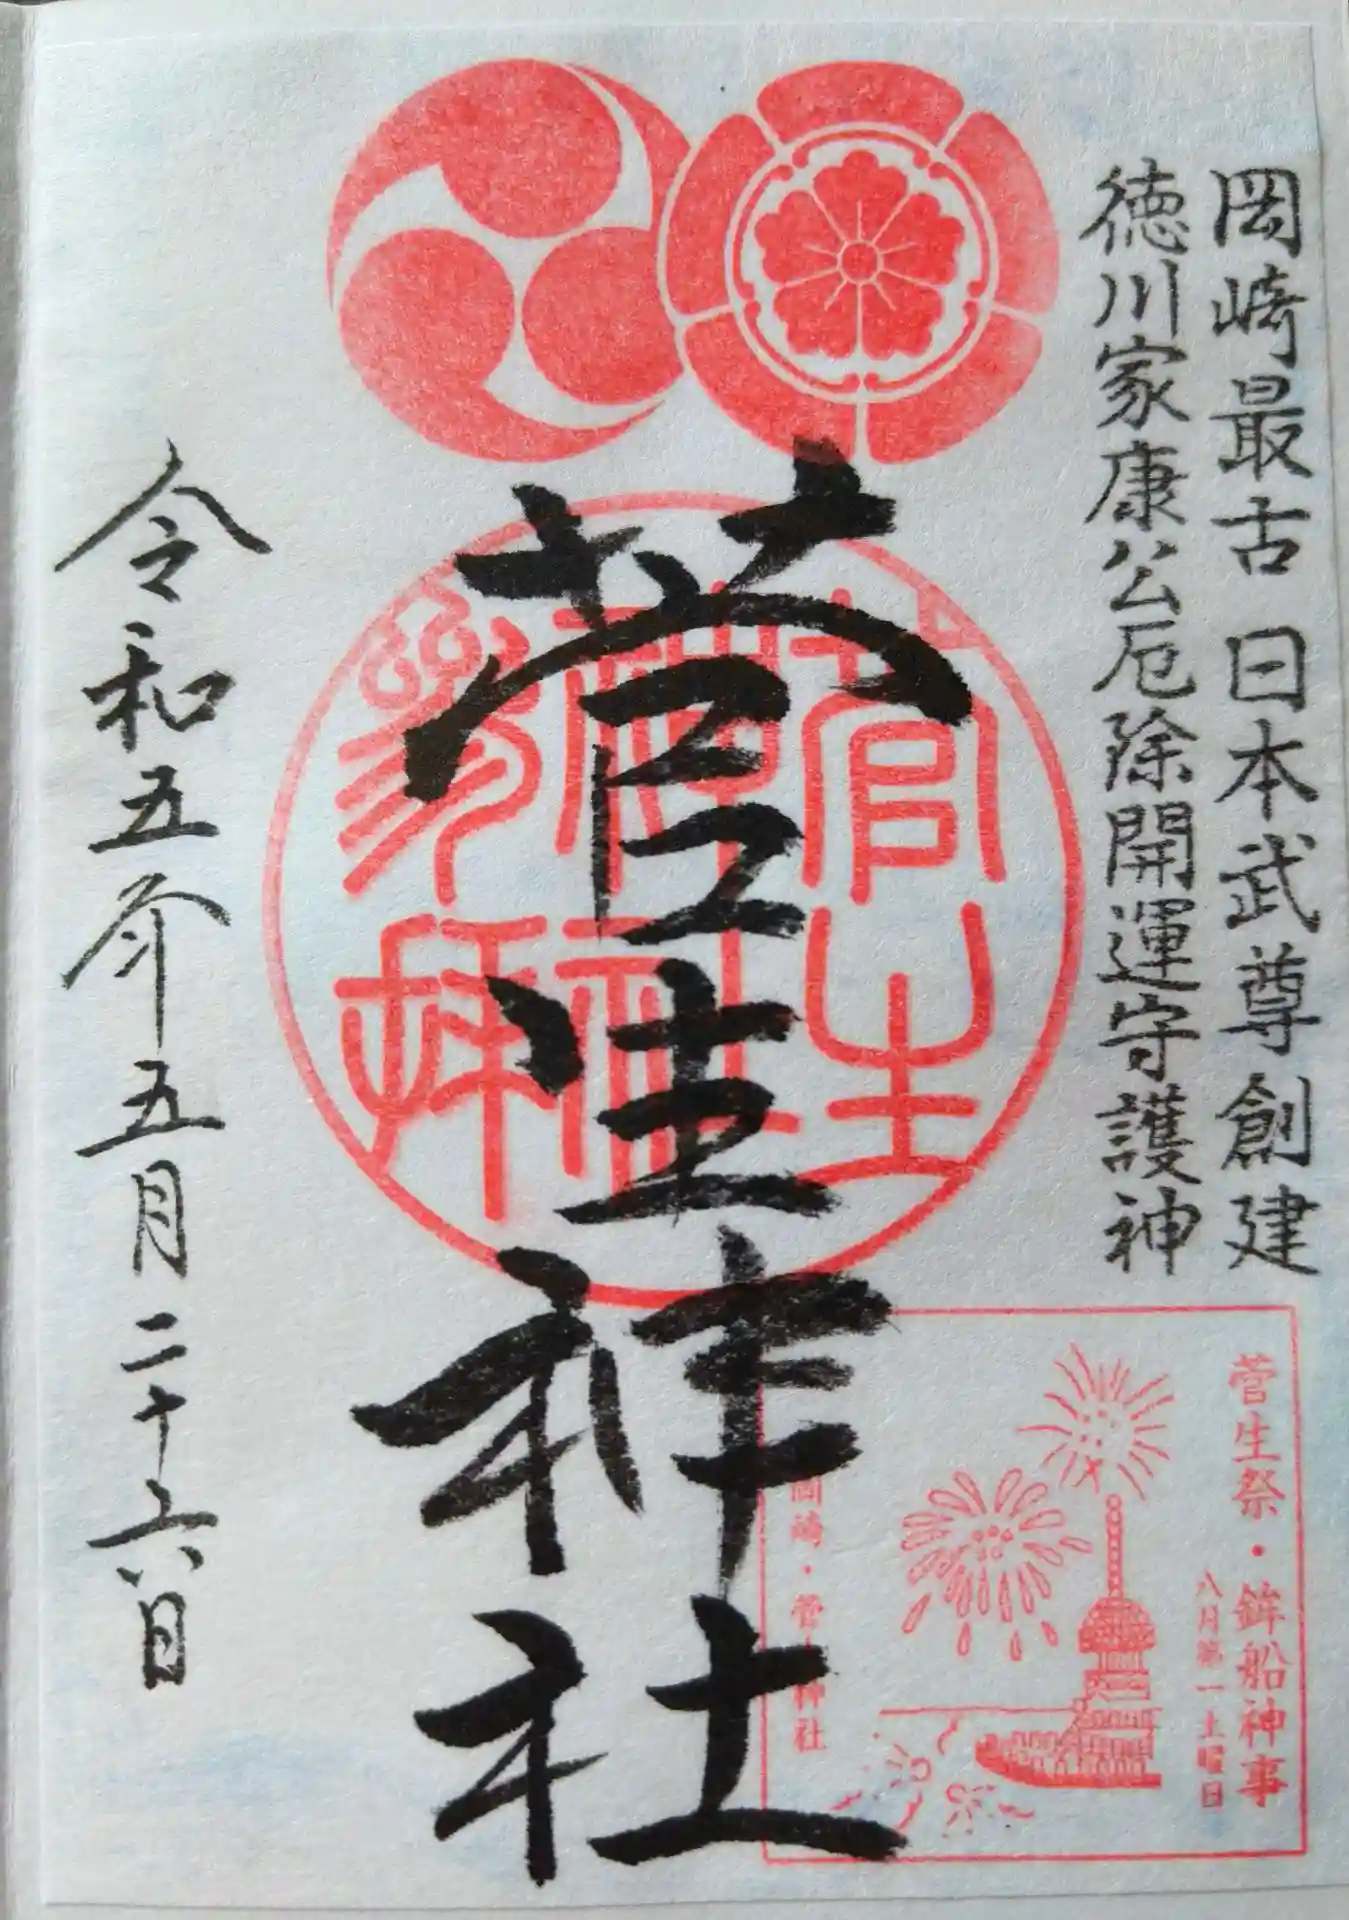 岡崎最古 日本武尊創建
徳川家康公厄除開運守護神
菅生神社
菅生神社参拝
令和五年五月二十六日
菅生祭・鉾船神事
八月第一土曜日
岡崎・菅生神社